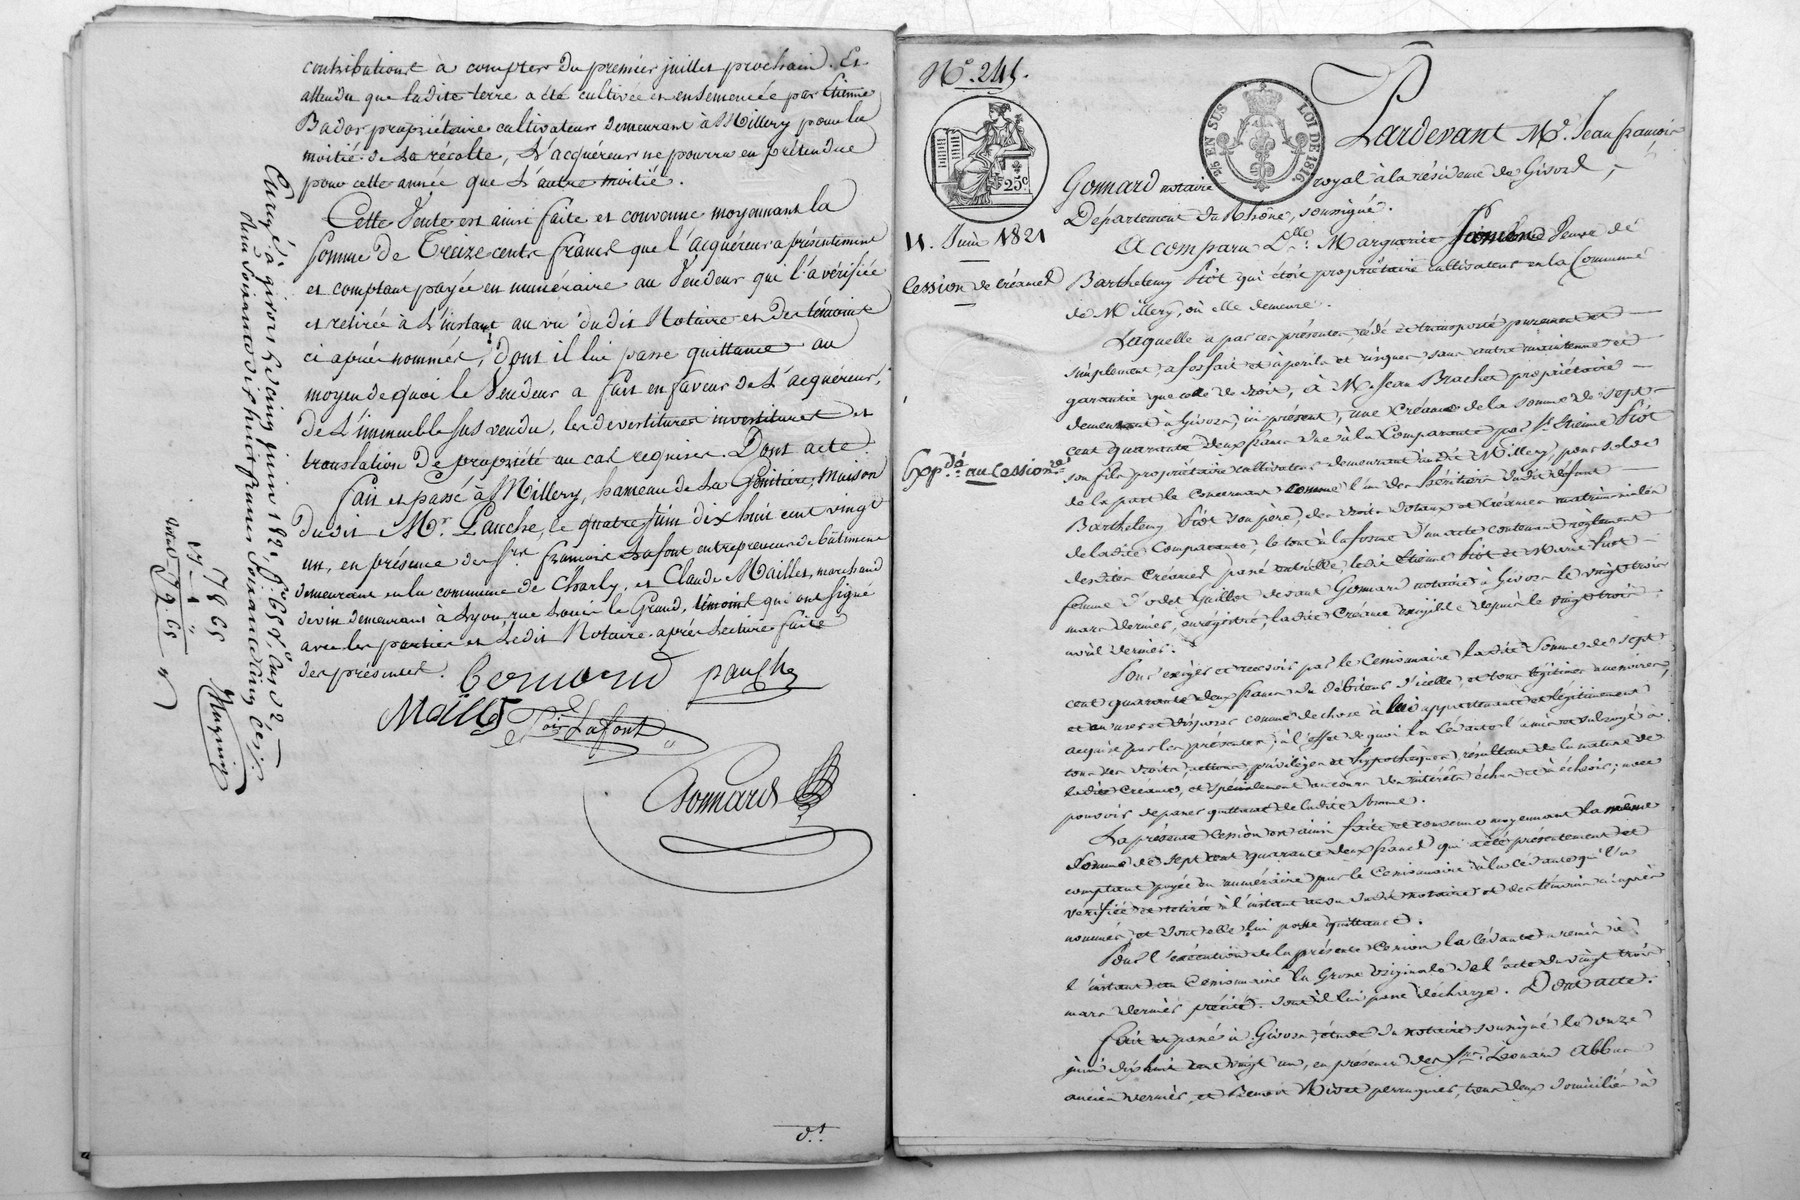 contributions à compter du premier juillet prochain. Et
attendu que ladite terre a été cultivée et ensemencée par Etienne
Bador propriétaire cultivateur demeurant à Millery pour la
moitié de la récolte, l'acquéreur ne pourra en prétendre
pour cette année que l'autre moitié.
Cette Vente est ainsi faite et convenue moyennant la
somme de Treize cents francs que l'acquéreur a présentement
et comptant payée en numéraire au Vendeur qui l'a vérifiée
et retirée à l'instant au vu dudit Notaire et des témoins
ci après nommés, dont il lui passe quittance au
moyen de quoi le Vendeur a fait en faveur de l'acquéreur,
de l'immeuble sus vendu, les devestitures investitures et
translation de propriété au cas requises. Dont acte.
Fait et passé à Millery, hameau de la maison
dudit Mr. Pauche, le quatre juin dix huit cent vingt
un, en présence de Srs. françois Lafont entrepreneur de bâtimens
demeurant en la commune de Charly, et Claude Maillet, marchand
de vin demeurant à Lyon, rue Louis le Grand, témoins qui ont signé
avec les parties et ledit Notaire après lecture faite
des présentes.
pauche
Maillet
fois Lafont
Gonnard
d.t
No. 245.
25 EN SUS
LOI DE 1816
25c
Pardevant Me. Jean françois
Gonnard notaire royal à la résidence de Givors,
Département du Rhône, soussigné.
11. Juin 1821
A comparu Marguerite Veuve de
Cession de Créances
Barthelemy Fiot qui étoit propriétaire cultivateur en la Commune
de Millery, où elle demeure.
Laquelle a par ces présentes, cédé et transporté purement et
simplement, à forfait et à périls et risques, sans autre maintenue et
garantie que celle de droit, à Mr. Jean Brachet propriétaire
demeurant à Givors, ici présent, une Créance de la somme de sept
cent quarante deux francs due à la Comparante par Sr. Etienne Fiot
Expd. au Cessionre.
son fils propriétaire cultivateur demeurant audit Millery, pour solde
de la part le concernant comme l'un des héritiers dudit défunt
Barthelemy Fiot son père, des droits dotaux et créances matrimoniales
de ladite Comparante, le tout à la forme d'un acte contenant règlement
desdites Créances passé entr'elle, ledit Etienne Fiot et Marie Fiot
femme d'odet Guillot devant Gonnard notaire à Givors le vingt trois
mars dernier, enregistré, ladite Créance exigible depuis le vingt trois
avril dernier.
Pour exiger et recevoir par le Cessionnaire ladite Somme de sept
cent quarante deux francs du débiteur d'icelle, et tous légitimes
et en user et disposer comme de chose à lui appartenante et légitimement
acquise par les présentes, à l'effet de quoi la Cédante l'a mis et subrogé à
tous ses droits, actions, privilèges et hypothèques, résultant de la nature de
ladite Créance, et spécialement au cours des intérêts échus et à échoir; avec
pouvoir de passer quittance de ladite Somme.
La présente Cession est ainsi faite et convenue moyennant la même
somme de sept cent quarante deux francs qui a été présentement et
comptant payée en numéraire par le Cessionnaire à la Cédante qui l'a
vérifiée et retirée à l'instant au vu dudit notaire et des témoins ci après
nommés, et dont elle lui passe quittance.
Pour l'exécution de la présente Cession la Cédante a remis à
l'instant au Cessionnaire la Grosse originale de l'acte du vingt trois
mars dernier précité, dont il lui passe décharge. Dont acte.
fait et passé à Givors, étude du notaire soussigné le onze
juin dix huit cent vingt un, en présence des Srs. Leonard
ancien verrier, et Benoit perruquier, tous deux domiciliés à